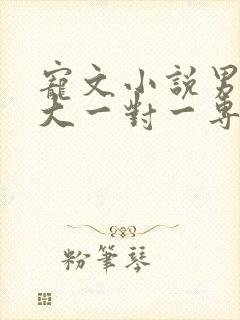 寵文小說男
大一對一專
粉筆琴